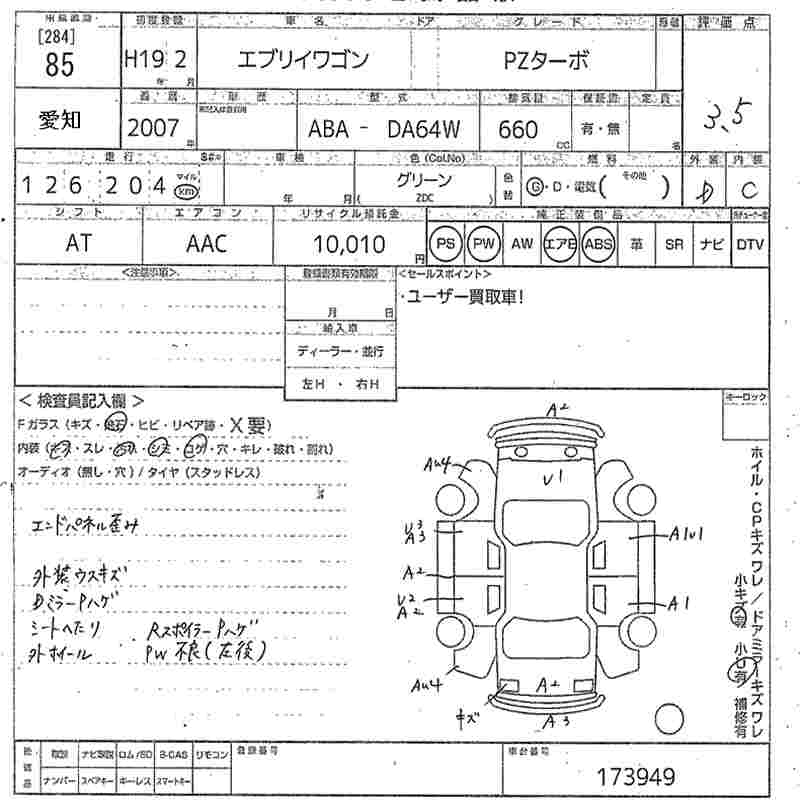 [284]
85
初度登録
H19 2
年 月
車名
ドア
グレード
エブリイワゴン
PZターボ
評価点
3.5
愛知
2007
年
車歴
型式
ABA - DA64W
排気量
660
CC
保証書
有・無
定員
名
走行
126204
マイル
km
車検
年 月
色(Col.No)
グリーン
( ZDC )
色替
燃料
G・D・電気( その他 )
外装
D
内装
C
シフト
AT
エアコン
AAC
リサイクル預託金
10,010
円
純正装備品
PS PW AW エアB ABS 革 SR ナビ DTV
<注意事項>
登録書類有効期限
月 日
輸入車
ディーラー・並行
左H ・ 右H
<セールスポイント>
・ユーザー買取車!
<検査員記入欄>
Fガラス(キズ・飛石・ヒビ・リペア跡・X要)
内装(キズ・スレ・汚れ・シミ・コゲ・穴・キレ・破れ・割れ)
オーディオ(無し・穴)/タイヤ(スタッドレス)
エンドパネル歪み
外装ウスキズ
DミラーPハゲ
シートへたり RスポイラーPハゲ
外ホイール PW不良(左後)
キーロック
A2
AU4
U1
U3
A3
A1U1
A2
U2
A2
A1
AU4
A2
キズ
A3
ホイル・CPキズワレ/ドアミラーキズワレ
小キズ有 小U有 補修有
取説 ナビ取説 ロム/SD B-CAS リモコン
ナンバー スペアキー キーレス スマートキー
登録番号
車台番号
173949